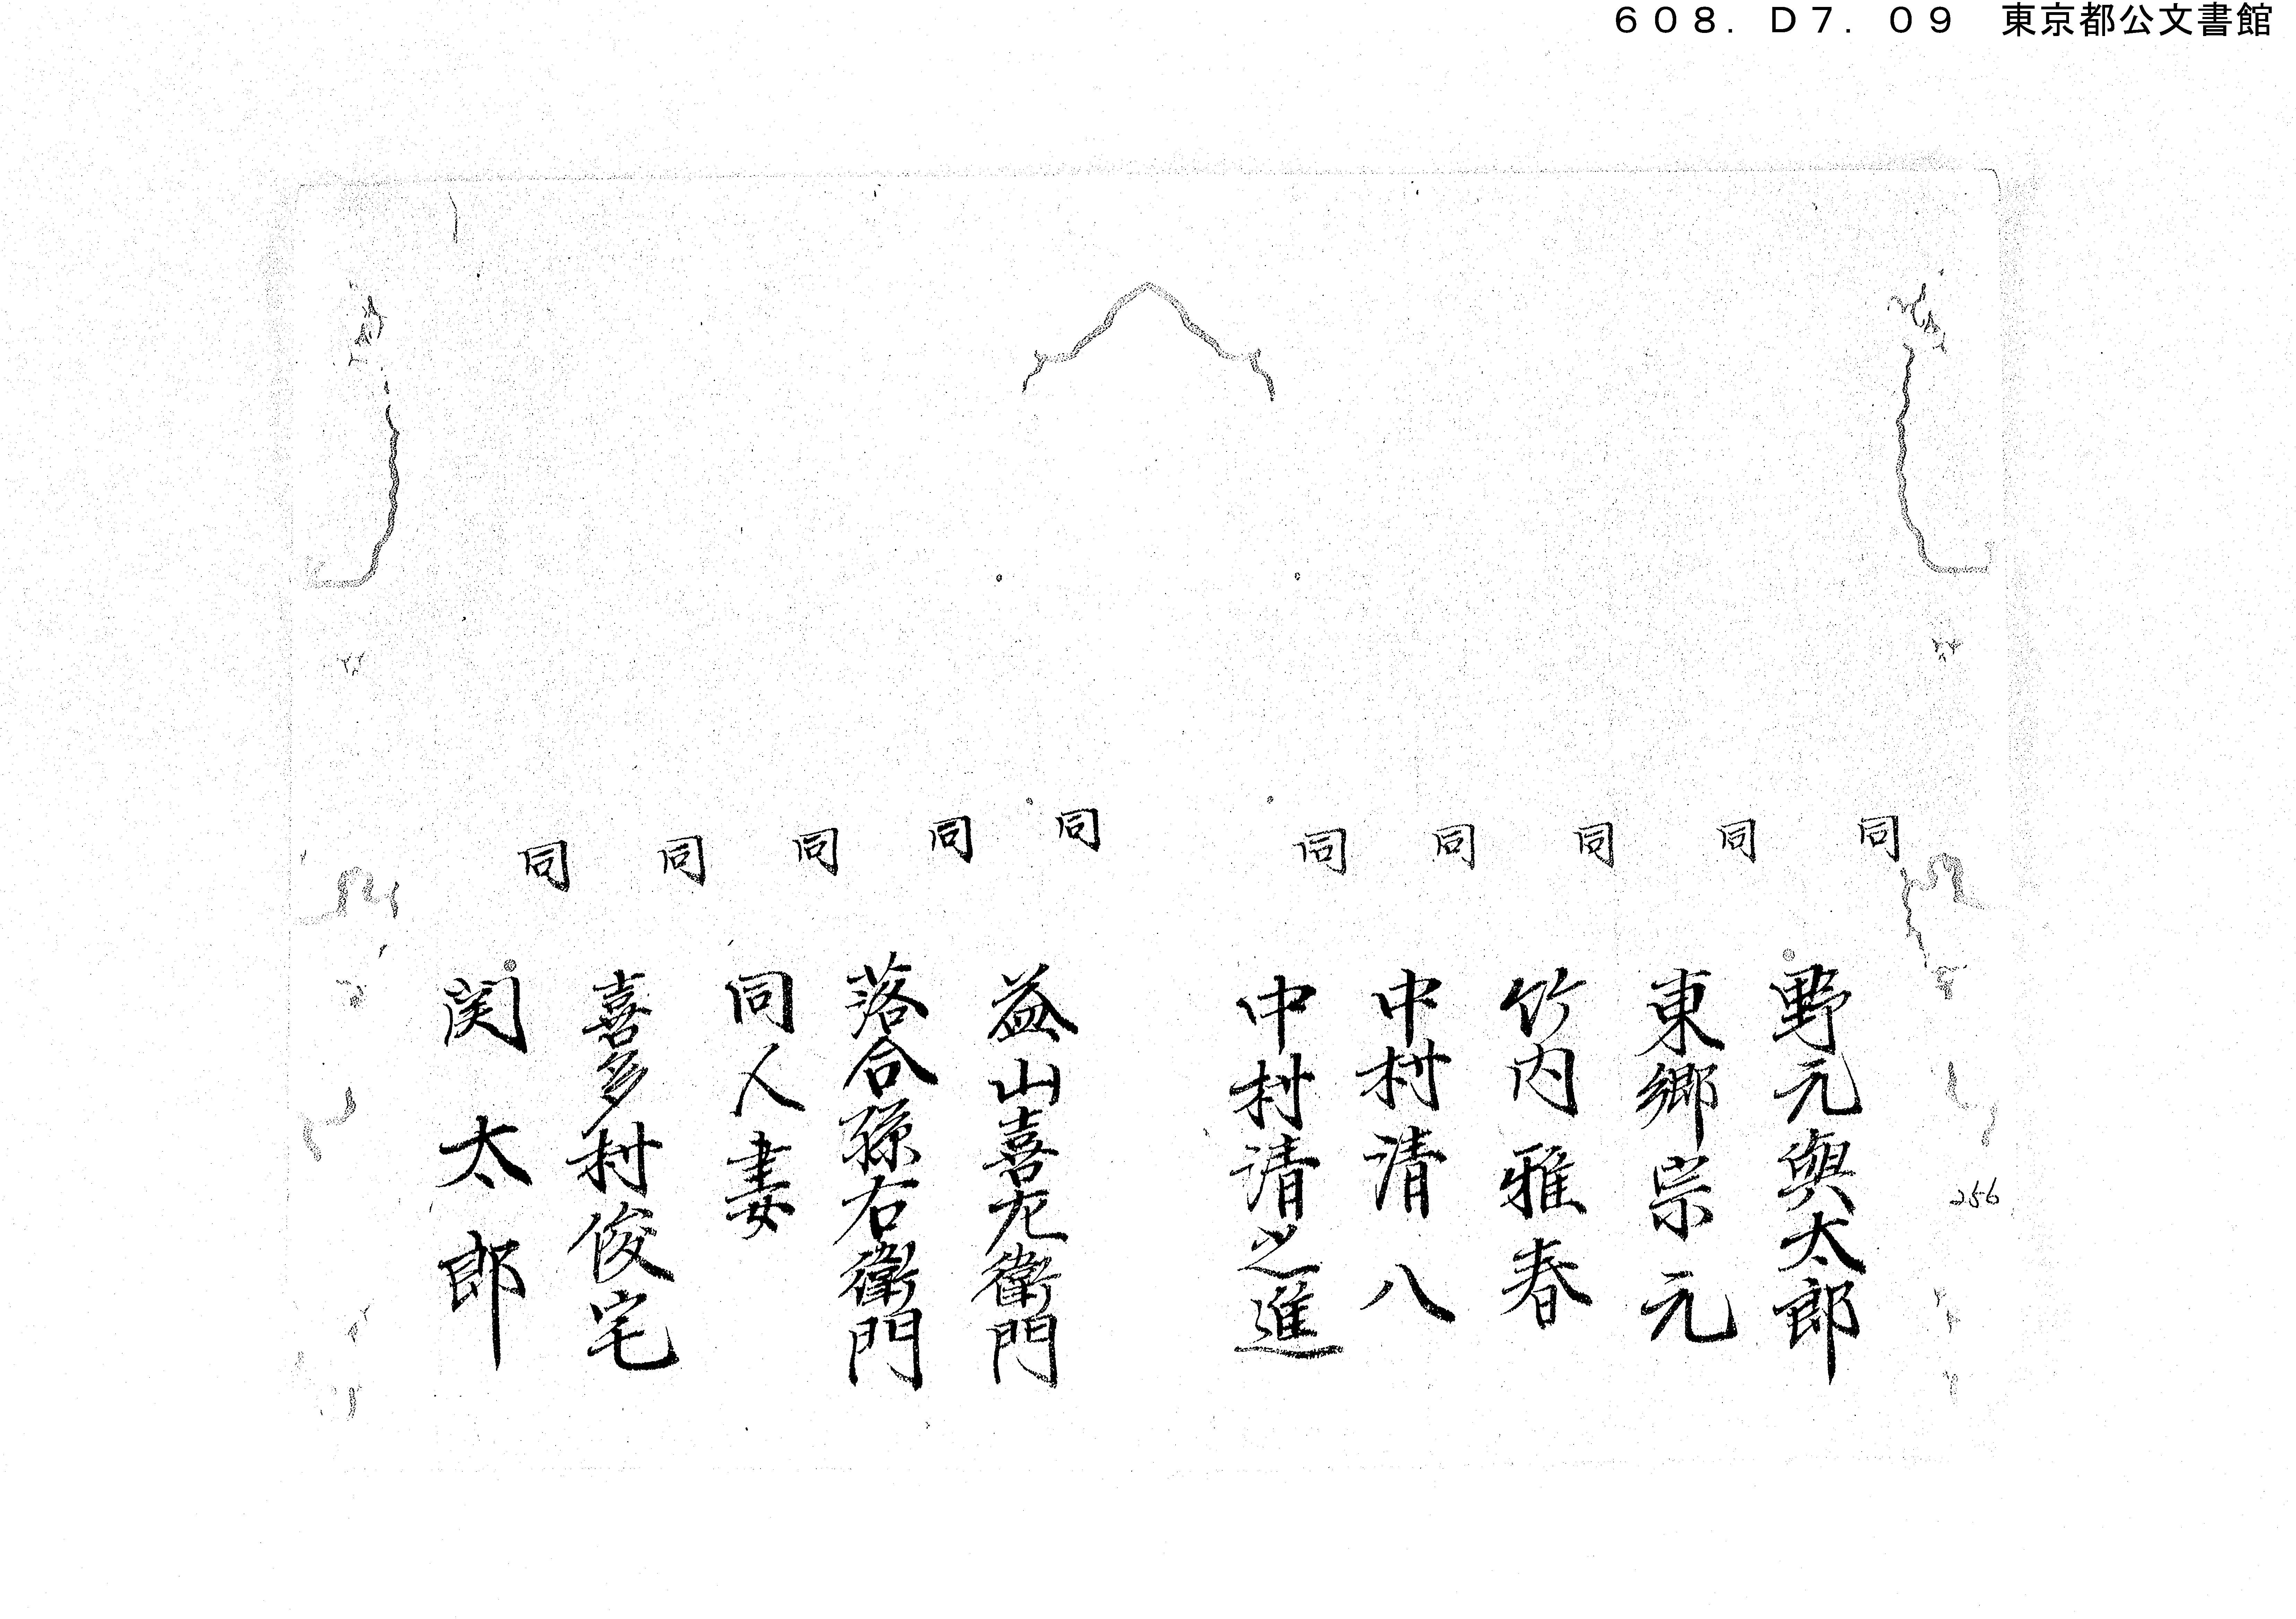 608. D7. 09 東京都公文書館
同 野元與太郎
同 東郷宗元
同 竹内雅春
同 中村清八
同 中村清之進
同 益山喜左衛門
同 落合孫右衛門
同 同人妻
同 喜多村俊宅
同 関太郎
256